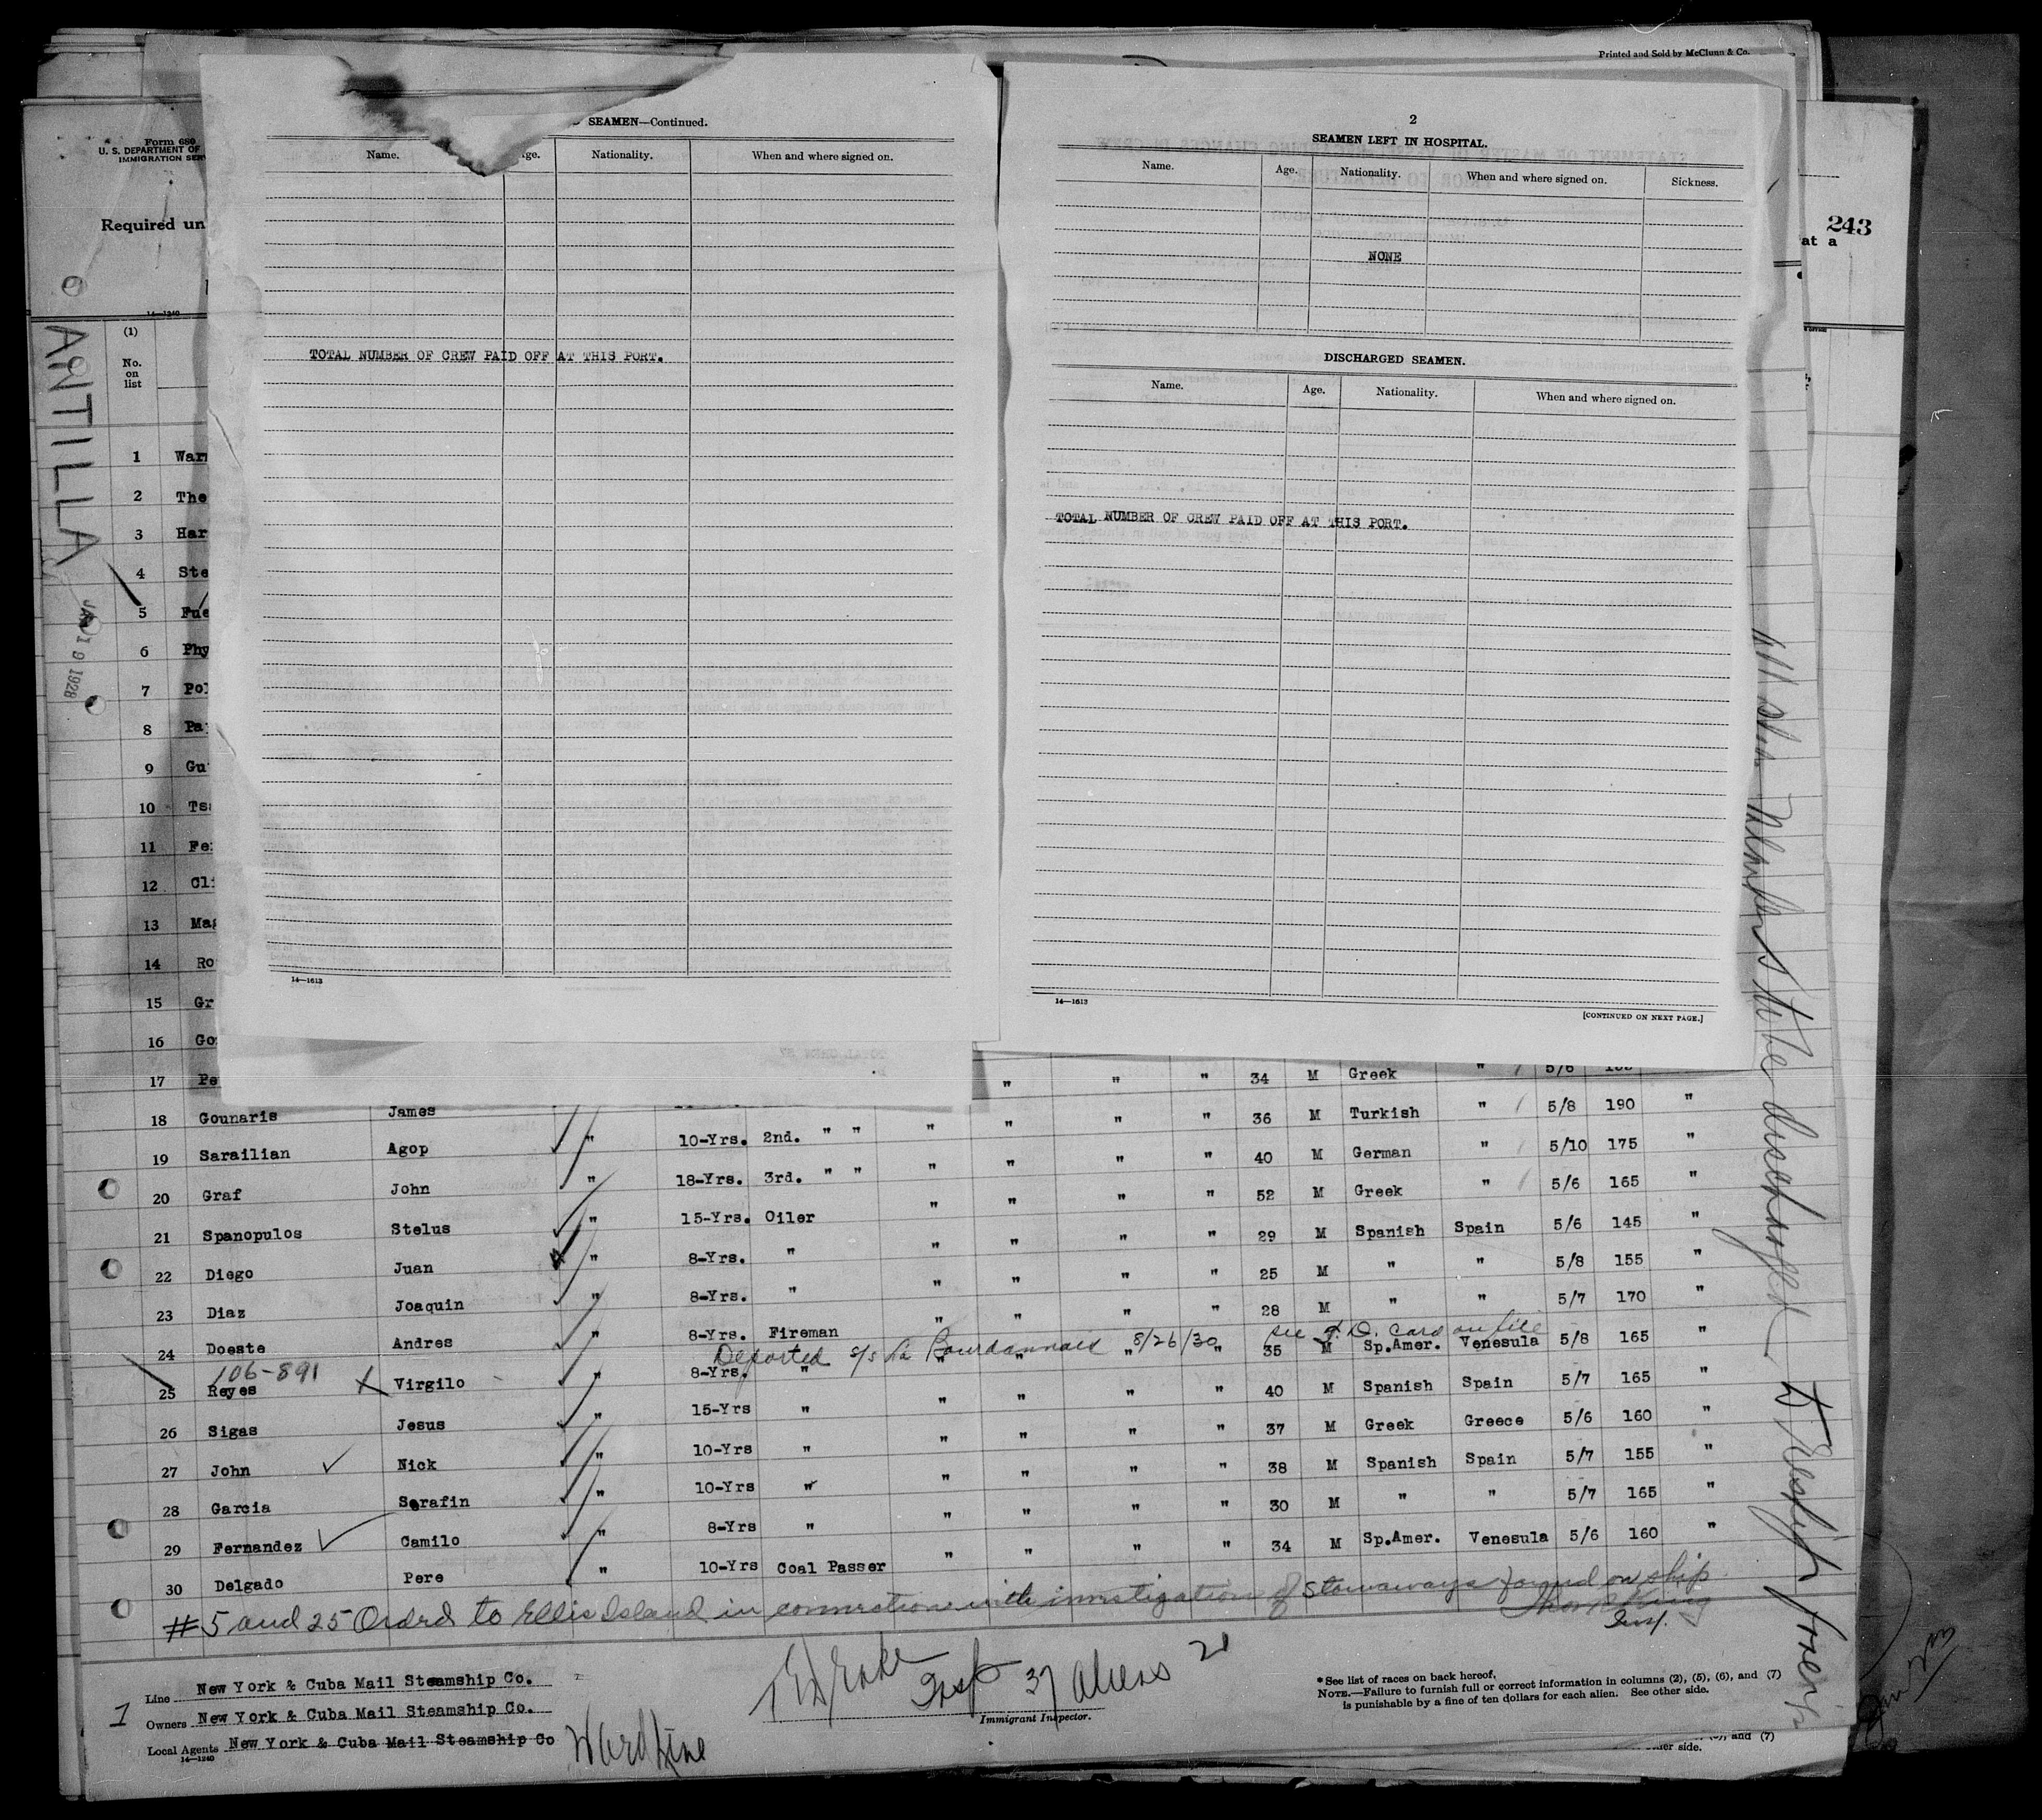 Printed and Sold by McClunn & Co.
Form 680
U. S. DEPARTMENT OF
IMMIGRATION SER
Required un
14—1240
243
at a
ANTILLA
JAN 19 1928
(1)
No.
on
list
SEAMEN—Continued.
Name.
Age.
Nationality.
When and where signed on.
TOTAL NUMBER OF CREW PAID OFF AT THIS PORT.
14—1613
2
SEAMEN LEFT IN HOSPITAL.
Name. Age. Nationality. When and where signed on. Sickness.
NONE
DISCHARGED SEAMEN.
Name. Age. Nationality. When and where signed on.
TOTAL NUMBER OF CREW PAID OFF AT THIS PORT.
14—1613
[CONTINUED ON NEXT PAGE.]
1 War
2 The
3 Har
4 Ste
5 Fue
6 Phy
7 Pol
8 Pa
9 Gu
10 Ts
11 Fe
12 Cl
13 Mag
14 Ro
15 Gr
16 Go
17 Pe " " " 34 M Greek " 5/6
18 Gounaris James " " " " 36 M Turkish " 5/8 190 "
19 Sarailian Agop " 10-Yrs. 2nd. " " " " " " 40 M German " 5/10 175 "
20 Graf John " 18-Yrs. 3rd. " " " " " " 52 M Greek " 5/6 165 "
21 Spanopulos Stelus " 15-Yrs. Oiler " " " " 29 M Spanish Spain 5/6 145 "
22 Diego Juan " 8-Yrs. " " " " " 25 M " " 5/8 155 "
23 Diaz Joaquin " 8-Yrs. " " " " " 28 M " " 5/7 170 "
24 Doeste Andres " 8-Yrs. Fireman " " " " 35 M Sp.Amer. Venesula 5/8 165 "
106-891 Deported s/s La Bourdonnais 8/26/30 see I.D. Card on file
25 Reyes Virgilo " 8-Yrs. " " " " " 40 M Spanish Spain 5/7 165 "
26 Sigas Jesus " 15-Yrs " " " " " 37 M Greek Greece 5/6 160 "
27 John Nick " 10-Yrs " " " " " 38 M Spanish Spain 5/7 155 "
28 Garcia Serafin " 10-Yrs " " " " " 30 M " " 5/7 165 "
29 Fernandez Camilo " 8-Yrs " " " " " 34 M Sp.Amer. Venesula 5/6 160 "
30 Delgado Pere " 10-Yrs Coal Passer
#5 and 25 Ordrd to Ellis Island in connection with investigation of Stowaways found on ship
Insp.
All alien Members to be discharged to reship foreign
Line New York & Cuba Mail Steamship Co.
Owners New York & Cuba Mail Steamship Co.
Local Agents New York & Cuba Mail Steamship Co
14—1240
1
Ward Line
Insp 37 aliens 21
Immigrant Inspector.
*See list of races on back hereof,
NOTE.—Failure to furnish full or correct information in columns (2), (5), (6), and (7)
is punishable by a fine of ten dollars for each alien. See other side.
and (7)
er side.